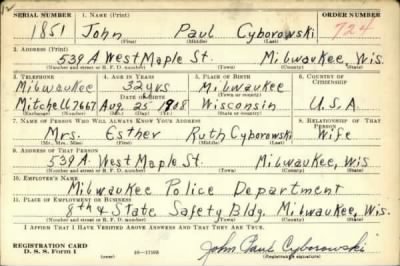 SERIAL NUMBER 1. NAME (Print) ORDER NUMBER
1851 John Paul Cyborowski 724
(First) (Middle) (Last)
2. ADDRESS (Print)
539A West Maple St. Milwaukee, Wis.
(Number and street or R. F. D. number) (Town) (County) (State)
3. TELEPHONE 4. AGE IN YEARS 5. PLACE OF BIRTH 6. COUNTRY OF CITIZENSHIP
Milwaukee 32 yrs Milwaukee
DATE OF BIRTH (Town or county)
Mitchell 7667 Aug. 25 1908 Wisconsin U.S.A.
(Exchange) (Number) (Mo.) (Day) (Yr.) (State or country)
7. NAME OF PERSON WHO WILL ALWAYS KNOW YOUR ADDRESS 8. RELATIONSHIP OF THAT PERSON
Mrs. Esther Ruth Cyborowski Wife
(Mr., Mrs., Miss) (First) (Middle) (Last)
9. ADDRESS OF THAT PERSON
539A West Maple St. Milwaukee, Wis
(Number and street or R. F. D. number) (Town) (County) (State)
10. EMPLOYER'S NAME
Milwaukee Police Department
11. PLACE OF EMPLOYMENT OR BUSINESS
8th & State Safety Bldg. Milwaukee, Wis.
(Number and street or R. F. D. number) (Town) (County) (State)
I AFFIRM THAT I HAVE VERIFIED ABOVE ANSWERS AND THAT THEY ARE TRUE.
REGISTRATION CARD
D. S. S. Form 1 16—17105 John Paul Cyborowski
(Registrant's signature)